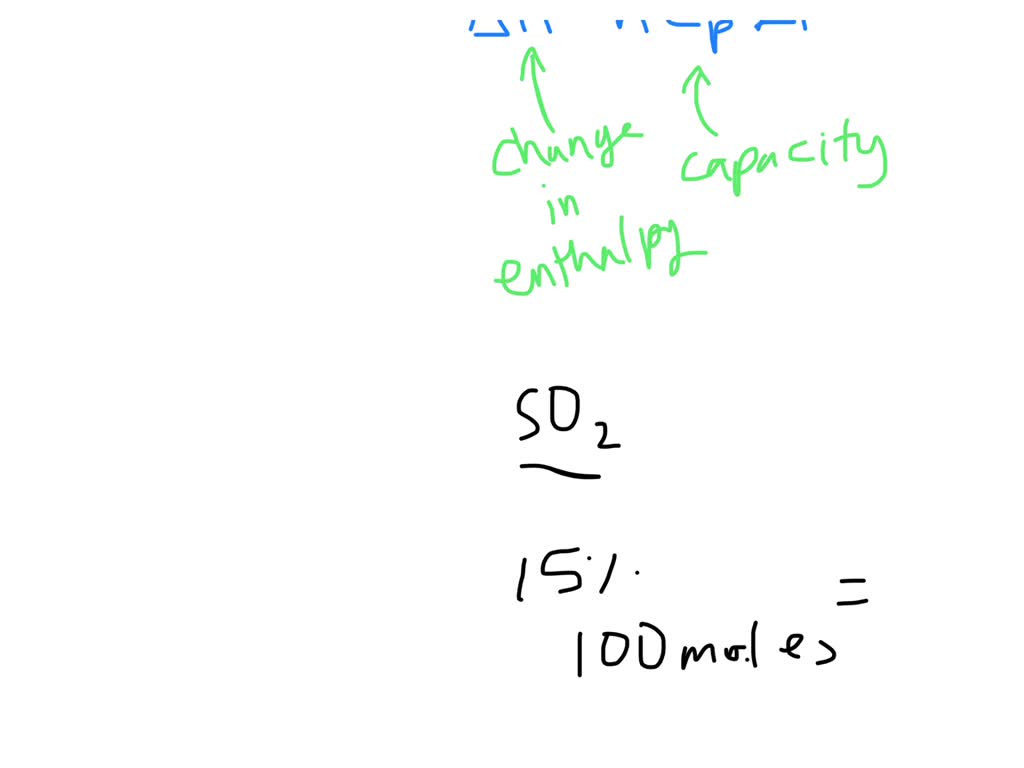 change
in
enthalpy
capacity
SO2
15%
100 moles =